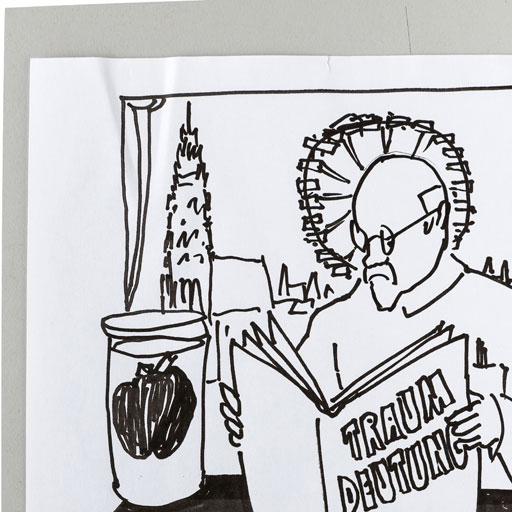 TRAUM
DEUTUNG